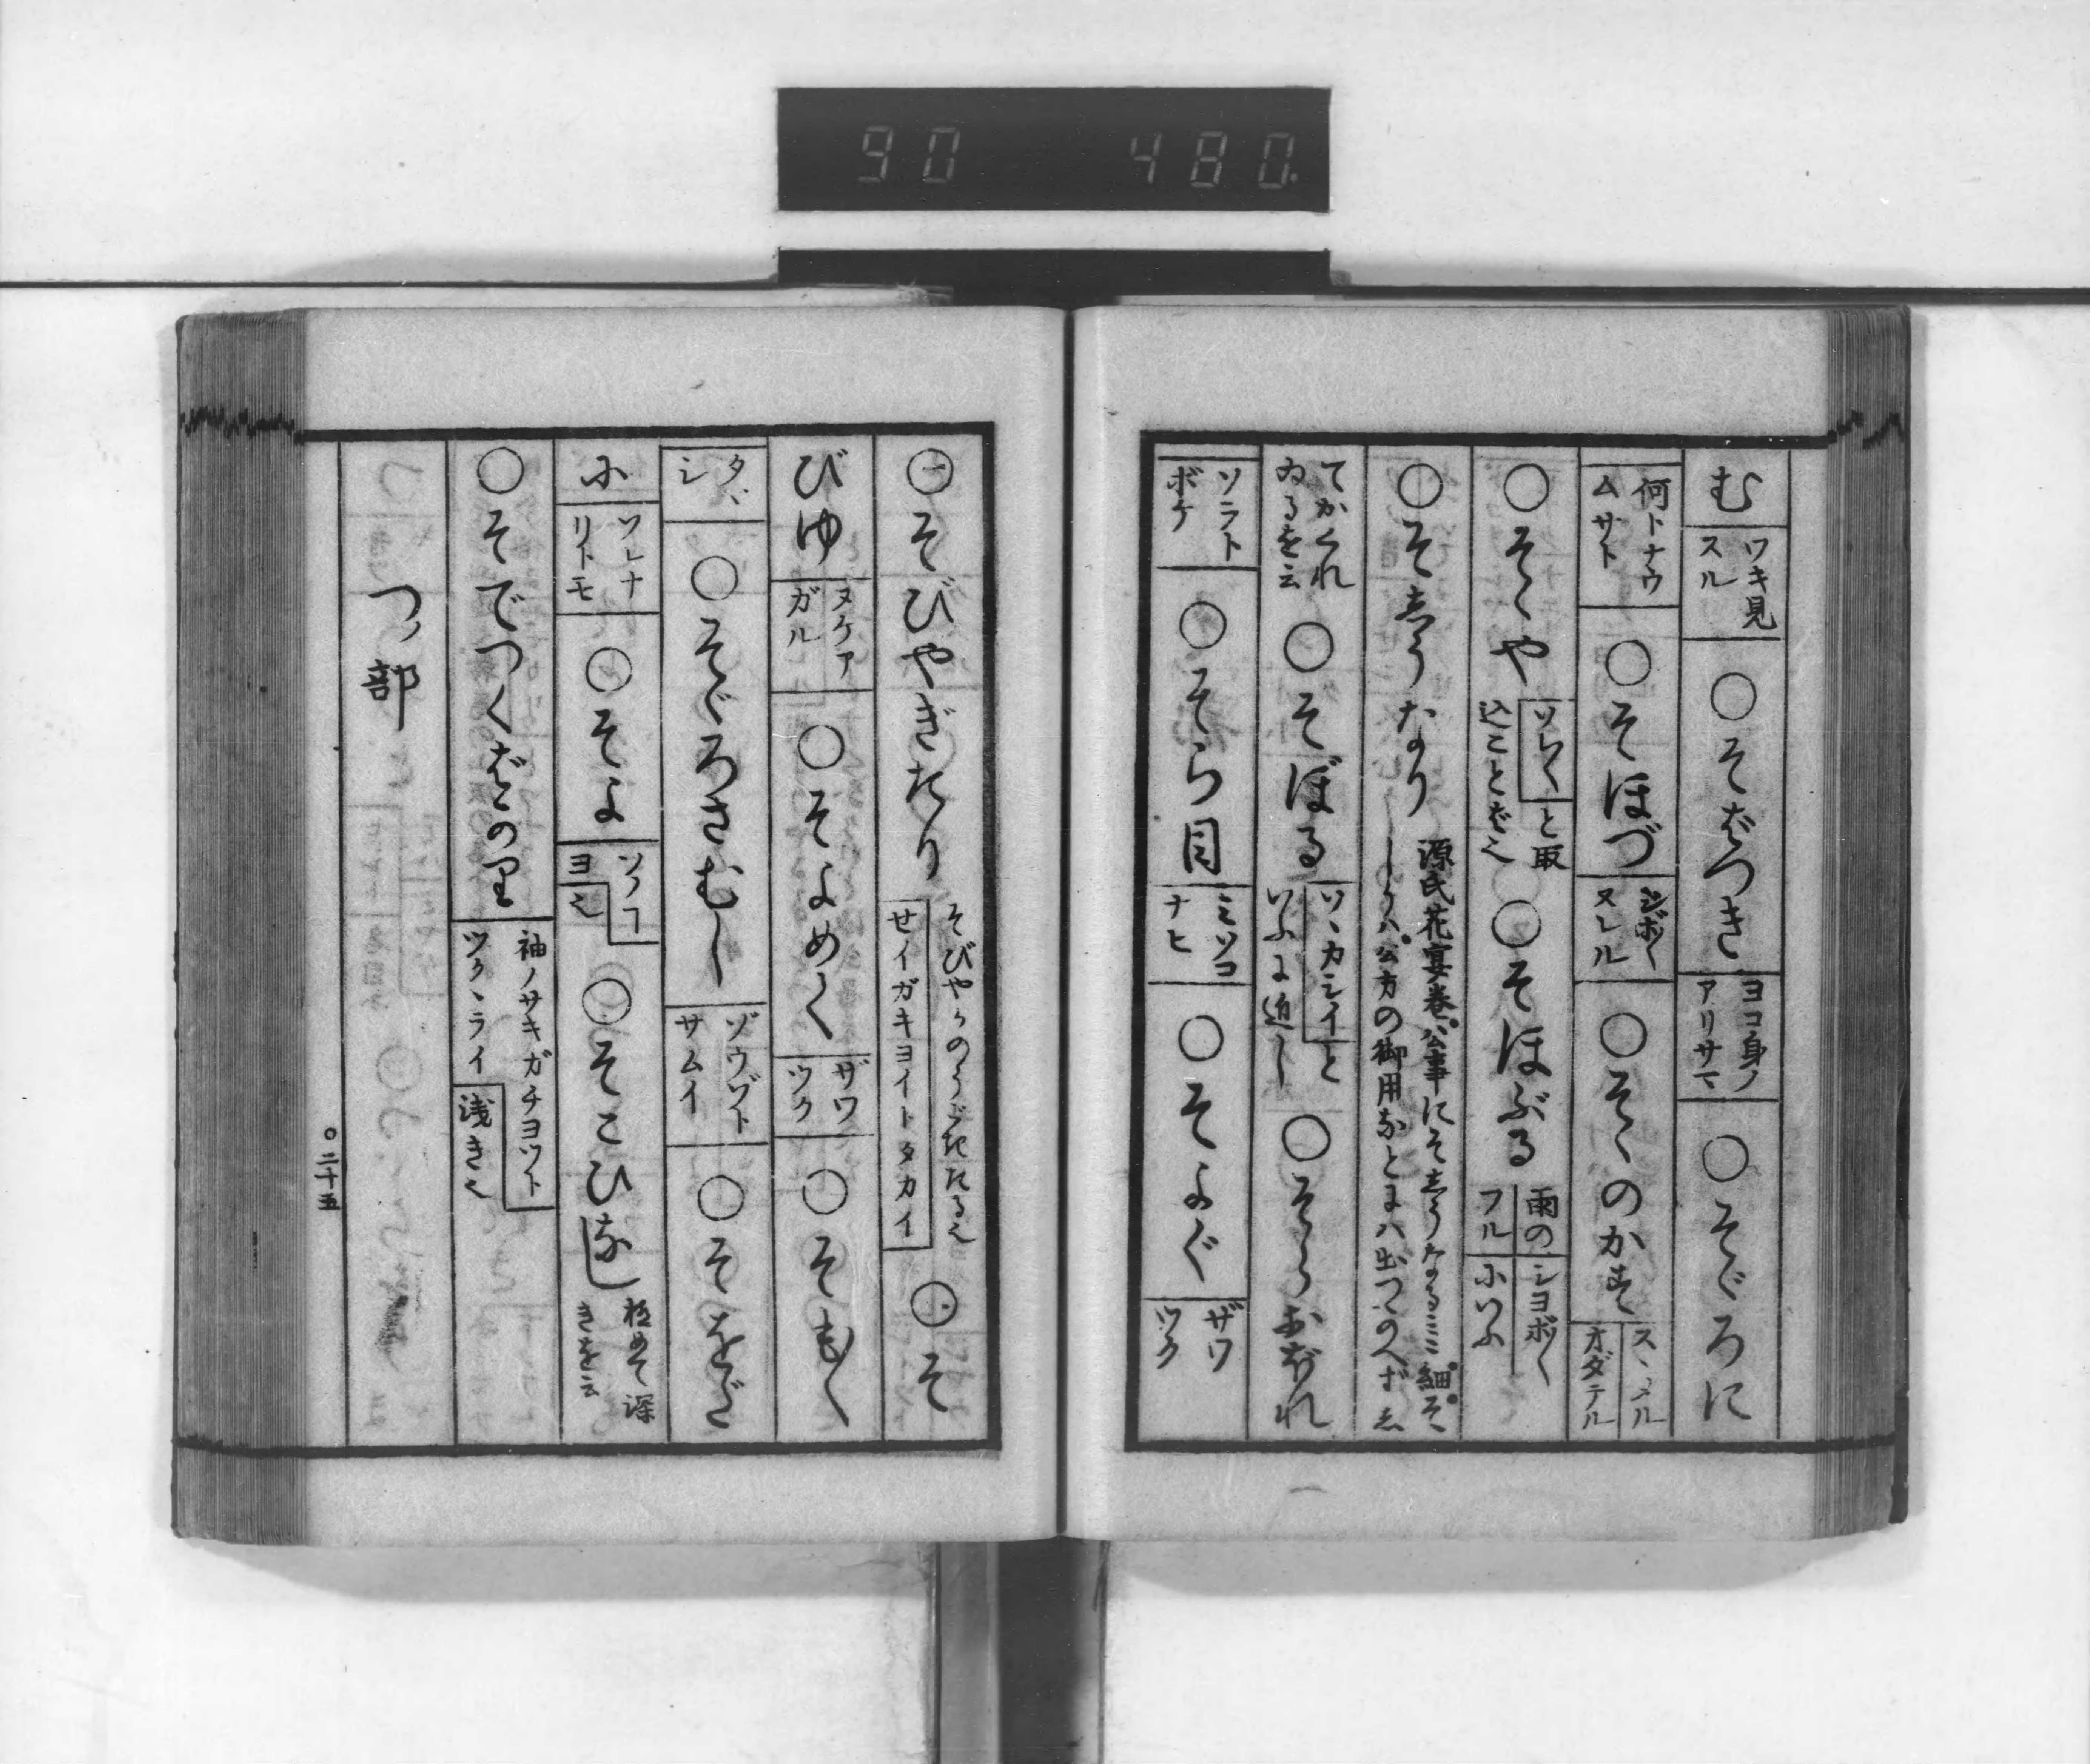 90 480
む ワキ見スル ○そばつき ヨコ身ノアリサマ ○そゞろに
何トナウムサト ○そほづ シボ〱ヌレル ○そゝのかす スヽメルオダテル
○そゝや ソレ〱と取込ことば也 ○そほぶる 雨のシヨボ〱フルにいふ
○そしうなり 源氏花宴巻公事にそしうなる
てかくれゐるを云 ○そぼる ソヽカシイといふに近し ○そらおぼれ
ソラトボケ ○そら目 ミソコナヒ ○そよぐ ザワツク
○そびやぎたり そびやかのうごきたる也 セイガキヨイトタカイ ○そ
びゆ ヌケアガル ○そよめく ザワツク ○そもく
タヾシ ○そゞろさむし ゾウゾトサムイ ○そをだ
に ソレナリトモ ○そよ ソノコヨ也 ○そこひなし 極めて深きを云
○そでつくばかり 袖ノサキガチヨツトツクヽライ 浅き也
つノ部
○二十五